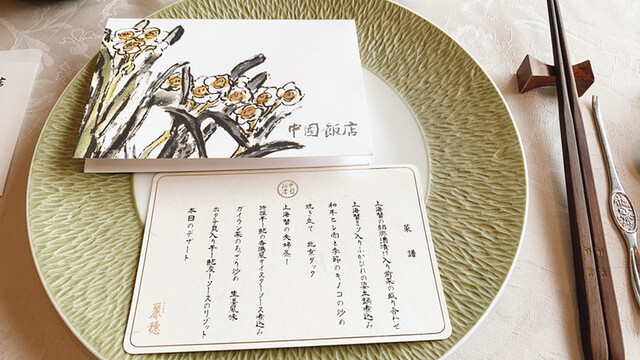 中國飯店
菜譜
上海蟹の紹興酒漬け入り前菜の盛り合わせ
上海蟹ミソ入りふかひれの姿土鍋煮込み
和牛ヒレ肉と季節のキノコの炒め
焼き立て 北京ダック
上海蟹の夫婦蒸し
特撰干し鮑の香港風オイスターソース煮込み
ガイラン菜のあっさり炒め 生姜風味
ホタテ貝入り干し鮑炭火ソースのリゾット
本日のデザート